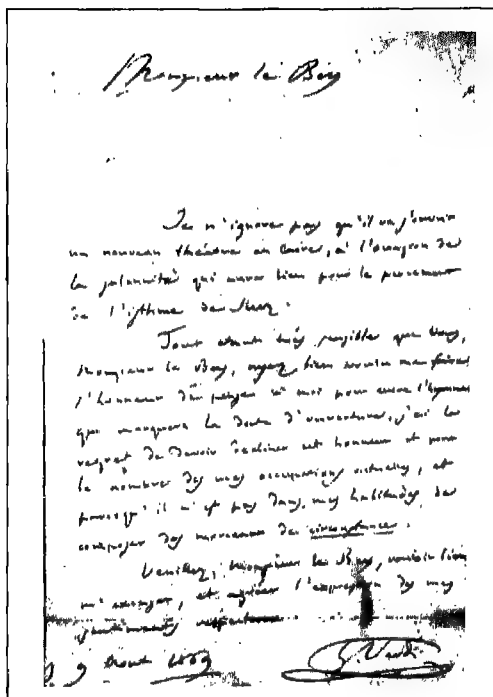 Monsieur le Bey
Je n'ignore pas qu'il va s'ouvrir
un nouveau théâtre au Caire, à l'occasion de
la solennité qui aura lieu pour le percement
de l'isthme de Suez.
Tout étant très sensible que Vous,
Monsieur le Bey, ayez bien voulu me faire
l'honneur de penser à moi pour écrire l'hymne
qui marquera la date d'ouverture, j'ai le
regret de devoir décliner cet honneur et pour
le nombre de mes occupations actuelles, et
parcequ'il n'est pas dans mes habitudes de
composer des morceaux de circonstance.
Veuillez, Monsieur le Bey, vouloir bien
m'excuser, et agréer l'expression de mes
sentiments
9 Aout 1869 G. Verdi